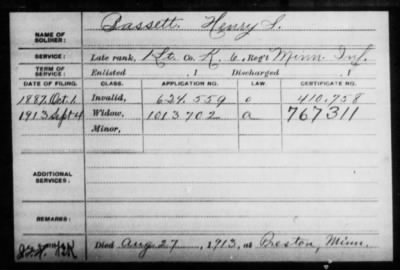 NAME OF SOLDIER: Bassett. Henry S.
SERVICE: Late rank, 1 Lt. Co. K, 6, Reg't Minn. Inf.
TERM OF SERVICE: Enlisted , 1 Discharged , 1
DATE OF FILING. CLASS. APPLICATION NO. LAW. CERTIFICATE NO.
1887. Oct. 1. Invalid, 624.559 410,758
1913 Sept 4 Widow, 1013702 a 767311
Minor,
ADDITIONAL SERVICES:
REMARKS:
Died Aug 27, 1913, at Preston, Minn.